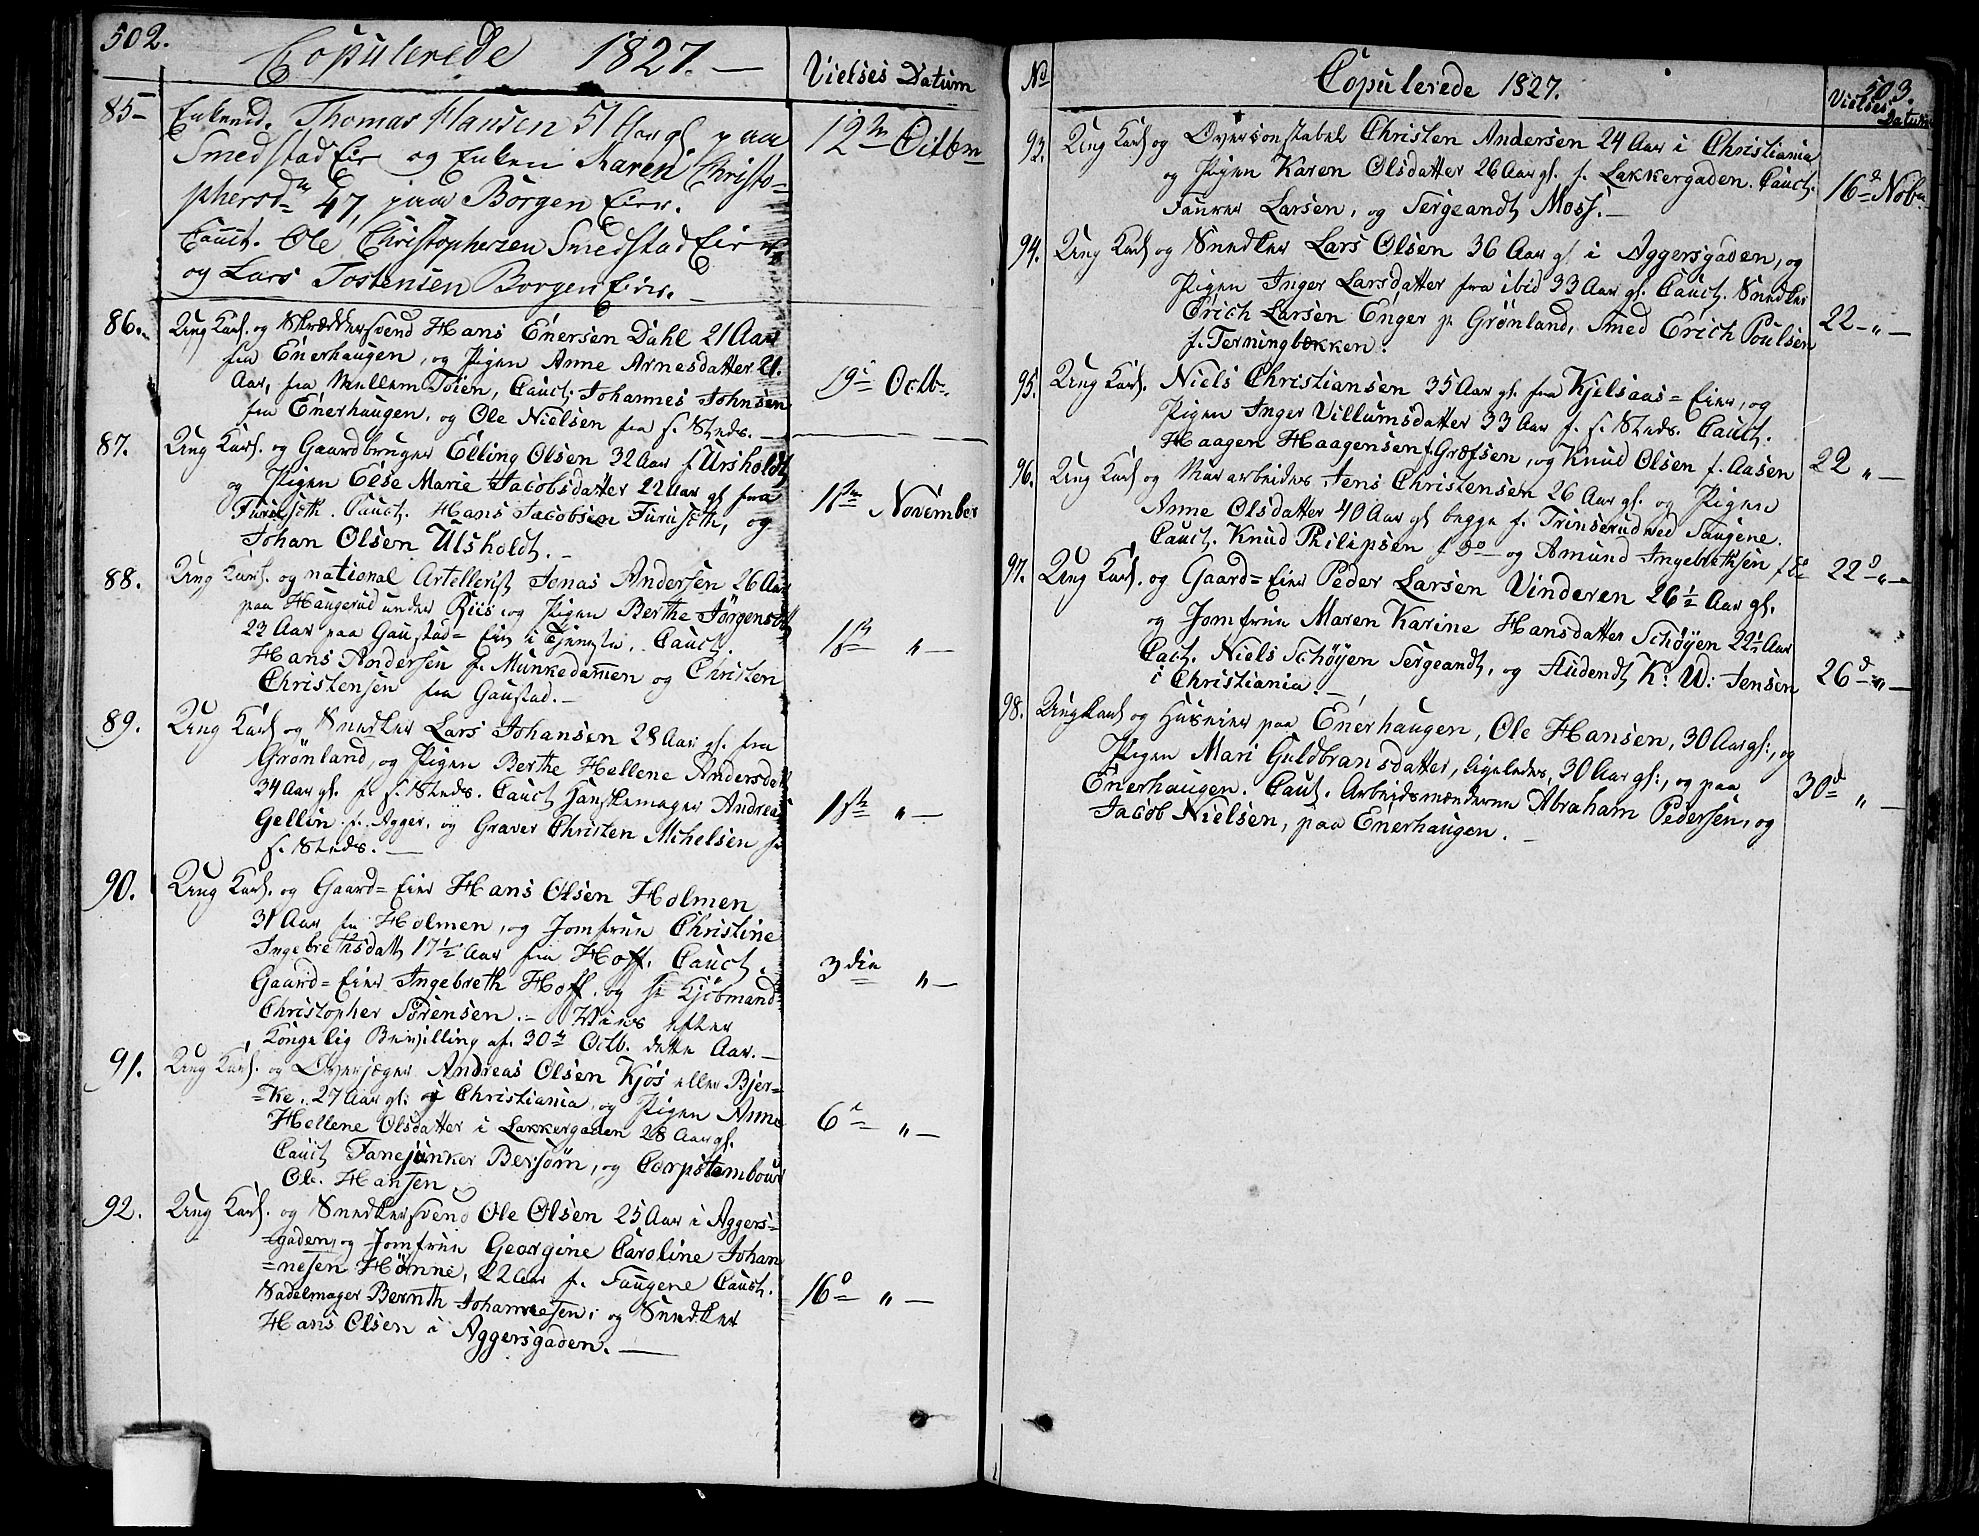 502.
Copulerede 1827. —
Vielses Datum
85 Enkemd. Thomas Hansen 51 Aar gl. paa
Smedstad Eie og Enken Karen Christo-
phersdr 47, paa Borgen Eier.
Cauct. Ole Christophersen Smedstad Eier
og Lars Tostensen Borgen Eier. —
12te Octbr
86. Ung Karl. og Skrædersvend Hans Enersen Dahl 21 Aar
fra Enerhaugen, og Pigen Anne Arnesdatter 21.
Aar, fra Mellem Töien, Cauct. Johannes Johnsen
fra Enerhaugen, og Ole Nielsen fra s. Steds. —
19de Octb.
87. Ung Karl. og Gaardbruger Elling Olsen 32 Aar f. Ulsholdt,
og Pigen Else Marie Jacobsdatter 22 Aar gl. fra
Furuseth. Cauct. Hans Jacobsen Furuseth, og
Johan Olsen Ulsholdt. —
1ste November
88. Ung Karl. og national Artellerist Jonas Andersen 26 Aar
paa Haugerud under Riis, og Pigen Berthe Jörgensdtt
23 Aar paa Gaustad= Eie i Tjeneste. Cauct.
Hans Andersen f. Munkedammen og Christen
Christensen fra Gaustad. —
1ste " —
89. Ung Karl og Snedker Lars Johansen 28 Aar gl. fra
Grønland, og Pigen Berthe Hellene Andersdatt
34 Aar gl. f. s. Steds. Cauct. Handskemager Andreas
Gellin f. Agger, og Graver Christen Michelsen fr
s. Steds. —
1ste " —
90. Ung Karl. og Gaard= Eier Hans Olsen Holmen
31 Aar fra Holmen, og Jomfrue Christine
Ingebrethsdatt 17½ Aar fra Hoff. Cauct.
Gaard= Eier Ingebreth Hoff. og Hr Kjöbmand
Christopher Sörensen. — Viet efter
Kongelig Bevilling af 30te Octb. dette Aar. —
3die " —
91. Ung Karl. og Overjæger Andreas Olsen Kjos eller Bjer-
=ke. 27 Aar gl: i Christiania, og Pigen Anne
Hellene Olsdatter i Lakkergaden 28 Aar gl.
Cauct. Fanejunker Bersörn, og Corpstambour
Ole Hansen
6te " —
92. Ung Karl. og Snedkersvend Ole Olsen 25 Aar i Aggers-
=gaden, og Jomfrue Georgine Caroline Johan
=nesen Hönne, 22 Aar f. Saugene Cauct.
Sadelmager Bernth Johannesen, og Snedker
Hans Olsen i Aggersgaden. —
16de " —
No
Copulerede 1827.
503.
Vielses
Datum
93. Ung Karl og Overconstabel Christen Andersen 24 Aar i Christiania
og Pigen Karen Olsdatter 26 Aar gl. f. Lakkergaden. Cauct.
Faurer Larsen, og Sergeandt Moss. —
16de Nobr
94. Ung Karl og Snedker Lars Olsen 36 Aar gl i Aggersgaden, og
Pigen Inger Larsdatter fra ibid 33 Aar gl. Cauct. Snedker
Erich Larsen Enger fr Grønland, Smed Erich Poulsen
f. Terningbekken.
22 — " —
95. Ung Karl. Niels Christiansen 35 Aar gl. fra Kjelsaas= Eier, og
Pigen Inger Villumsdatter 33 Aar f. s. Steds. Cauct.
Haagen Haagensen f. Græfsen, og Knud Olsen f. Aasen
22 " —
96. Ung Karl og Murarbeider Jens Christensen 26 Aar gl. og Pigen
Anne Olsdatter 40 Aar gl begge f. Trinserud ved Saugene.
Cauct. Knud Philipsen f. do og Amund Ingebrethsen f do
22de " —
97. Ung Karl. og Gaard= Eier Peder Larsen Vinderen 26½ Aar gl.
og Jomfrue Maren Karine Hansdatter Schöyen 22½ Aar
Cact. Niels Schöyen Sergeandt, og Student K. W: Jensen
i Christiania. —
26de " —
98. Ung Karl og Huseier paa Enerhaugen, Ole Hansen, 30 Aar gl:, og
Pigen Mari Guldbransdatter, ligeledes, 30 Aar gl:, og paa
Enerhaugen. Caut. Arbeidsmændene Abraham Pedersen, og
Jacob Nielsen, paa Enerhaugen. —
30de " —